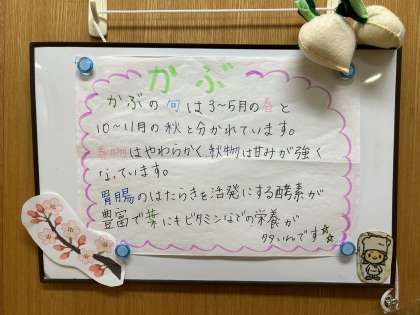 かぶ
かぶの旬は3~5月の春と
10~11月の秋と分かれています。
春物はやわらかく、秋物は甘みが強く
なっています。
胃腸のはたらきを活発にする酵素が
豊富で葉にもビタミンなどの栄養が
タタいんです☆☆